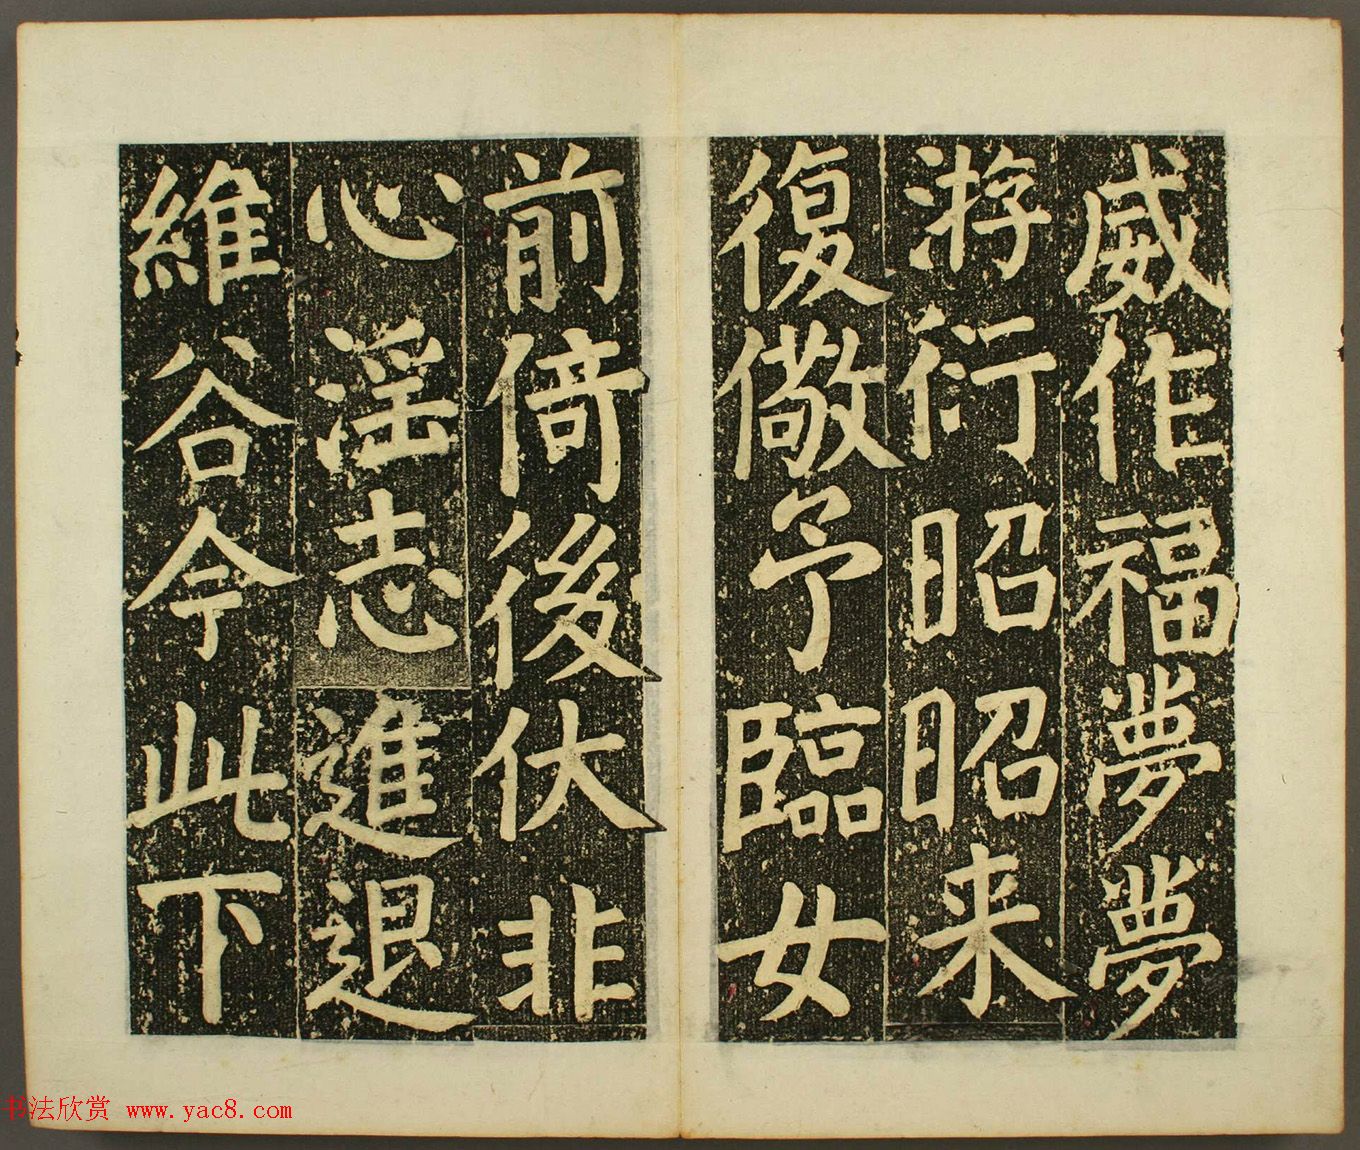 威作福夢夢
游衍昭昭来
復儆予臨女
前倚後伏非
心淫志進退
維谷今此下
书法欣赏 www.yac8.com